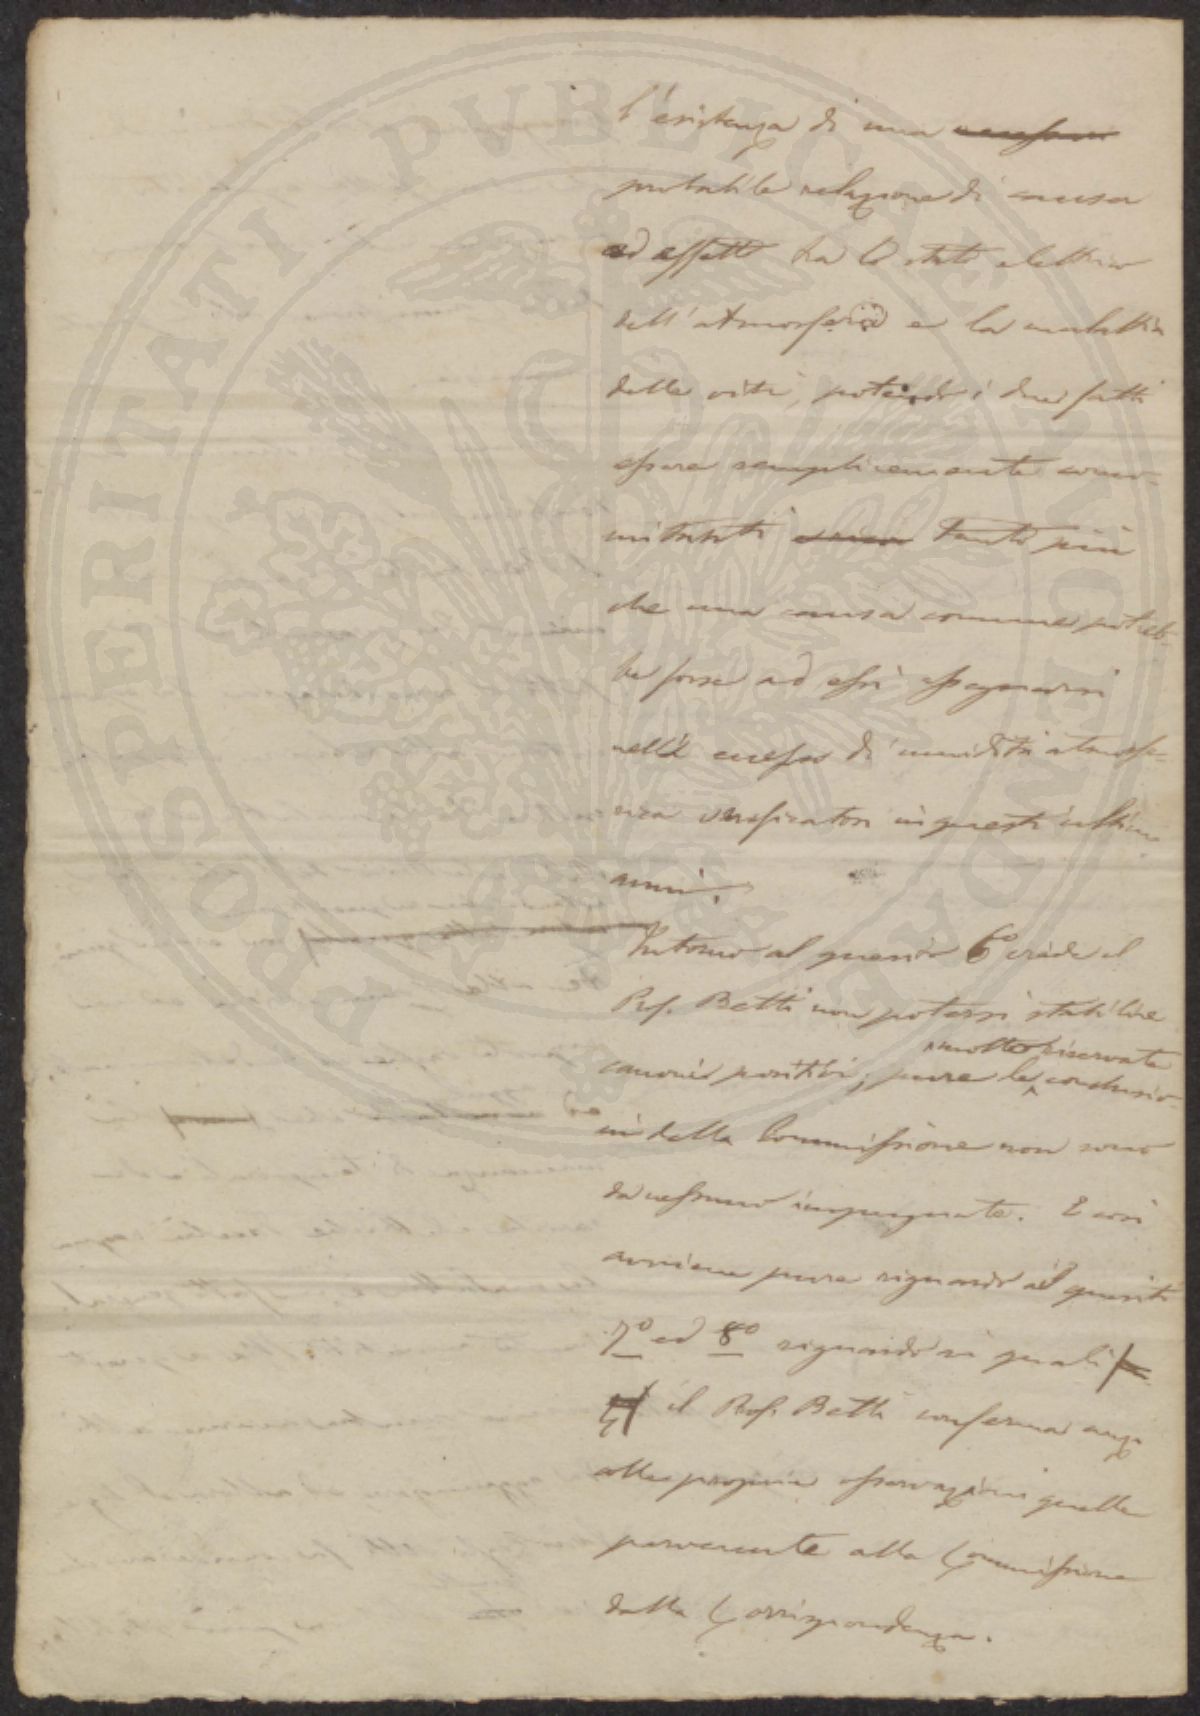 l'esistenza di una necessaria
probabile relazione di causa
ed effetto tra lo stato elettrico
dell'atmosfera e la malattia
delle viti, potendo i due fatti
essere semplicemente conco-
mitanti tanto più
che una causa comune potreb-
be forse ad essi assegnarsi
nell' eccesso di umidità atmosfe-
rica verificatosi in questi ultimi
anni.
Intorno al quesito 6º crede il
Prof. Betti non potersi stabilire
molto riservate
canoni positivi; pure le conclusio-
ni della Commissione non sono
da nessuno impugnate. E così
avviene pure riguardo ai quesiti
7º ed 8º riguardo ai quali
il Prof. Betti conferma anzi
colle proprie osservazioni quelle
pervenute alla Commissione
dalla Corrispondenza.
PROSPERITATI PVBLICAE AVGENDAE